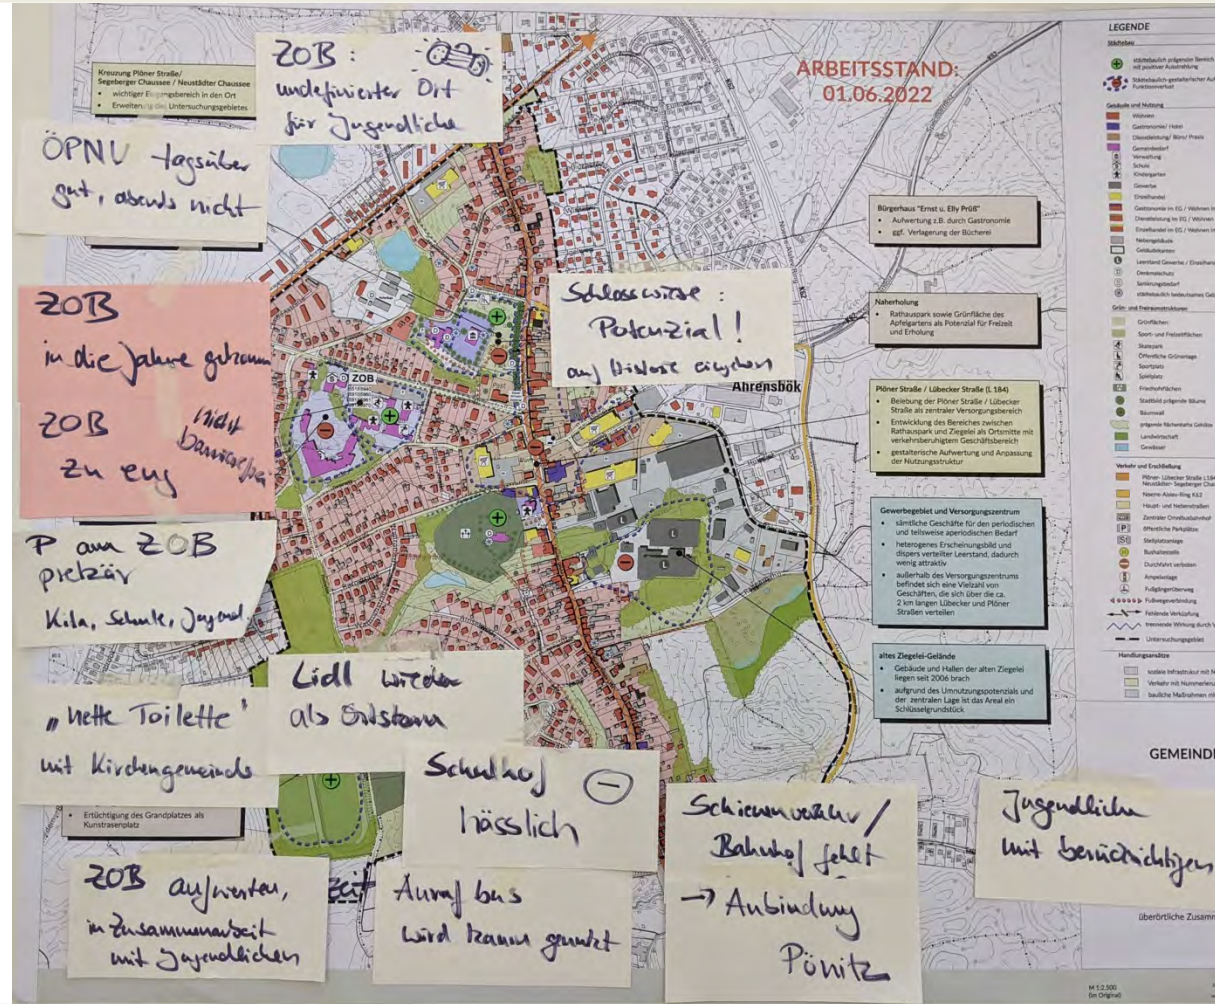 Kreuzung Plöner Straße/
Segeberger Chaussee / Neustädter Chaussee
wichtiger Eingangsbereich in den Ort
Erweiterung des Untersuchungsgebietes
ZOB:
undefinierter Ort
für Jugendliche
ÖPNV tagsüber
gut, abends nicht
ZOB
in die Jahre gekommen
ZOB nicht
zu eng barrierefrei
P am ZOB
prekär
Kita, Schule, Jugend.
"nette Toilette"
mit Kirchengemeinde
Ertüchtigung des Grandplatzes als
Kunstrasenplatz
Lidl wieder
als Ortskern
ZOB aufwerten,
in Zusammenarbeit
mit Jugendlichen
zeit
Schulhof
hässlich
Anrufbus
wird kaum genutzt
Schienenverkehr/
Bahnhof fehlt
→ Anbindung
Pönitz
Jugendliche
mit berücksichtigen
Schlosswiese:
Potenzial!
auf Historie eingehen
ZOB
Ahrensbök
ARBEITSSTAND:
01.06.2022
Bürgerhaus "Ernst u. Elly Prüß"
Aufwertung z.B. durch Gastronomie
ggf. Verlagerung der Bücherei
Naherholung
Rathauspark sowie Grünfläche des
Apfelgartens als Potenzial für Freizeit
und Erholung
Plöner Straße / Lübecker Straße (L 184)
Belebung der Plöner Straße / Lübecker
Straße als zentraler Versorgungsbereich
Entwicklung des Bereiches zwischen
Rathauspark und Ziegelei als Ortsmitte mit
verkehrsberuhigtem Geschäftsbereich
gestalterische Aufwertung und Anpassung
der Nutzungsstruktur
Gewerbegebiet und Versorgungszentrum
sämtliche Geschäfte für den periodischen
und teilweise aperiodischen Bedarf
heterogenes Erscheinungsbild und
dispers verteilter Leerstand, dadurch
wenig attraktiv
außerhalb des Versorgungszentrums
befindet sich eine Vielzahl von
Geschäften, die sich über die ca.
2 km langen Lübecker und Plöner
Straßen verteilen
altes Ziegelei-Gelände
Gebäude und Hallen der alten Ziegelei
liegen seit 2006 brach
aufgrund des Umnutzungspotenzials und
der zentralen Lage ist das Areal ein
Schlüsselgrundstück
LEGENDE
Städtebau
städtebaulich prägender Bereich
mit positiver Ausstrahlung
Städtebaulich-gestalterischer
Funktionsverlust
Gebäude und Nutzung
Wohnen
Gastronomie/ Hotel
Dienstleistung/ Büro/ Praxis
Gemeinbedarf
Verwaltung
Schule
Kindergarten
Gewerbe
Einzelhandel
Gastronomie im EG / Wohnen
Dienstleistung im EG / Wohnen
Einzelhandel im EG / Wohnen
Nebengebäude
Gebäudekanten
Leerstand Gewerbe /
Denkmalschutz
Sanierungsbedarf
städtebaulich bedeutsames
Grün- und Freiraumstrukturen
Grünflächen
Sport- und Freizeitflächen
Skatepark
Öffentliche Grünanlage
Sportplatz
Spielplatz
Friedhofsflächen
Stadtbild prägende Bäume
Baumwall
prägende flächenhafte Gehölze
Landwirtschaft
Gewässer
Verkehr und Erschließung
Plöner- Lübecker Straße
Neustädter- Segeberger
Haupt- und Nebenstraßen
Zentraler Omnibusbahnhof
öffentliche Parkplätze
Stellplatzanlage
Bushaltestelle
Durchfahrt verboten
Ampelanlage
Fußgängerüberweg
Fußwegeverbindung
Fehlende Verknüpfung
trennende Wirkung durch
Untersuchungsgebiet
Handlungsansätze
soziale Infrastruktur mit
Verkehr mit
bauliche Maßnahmen
GEMEIND
überörtliche
M 1:2.500
(im Original)